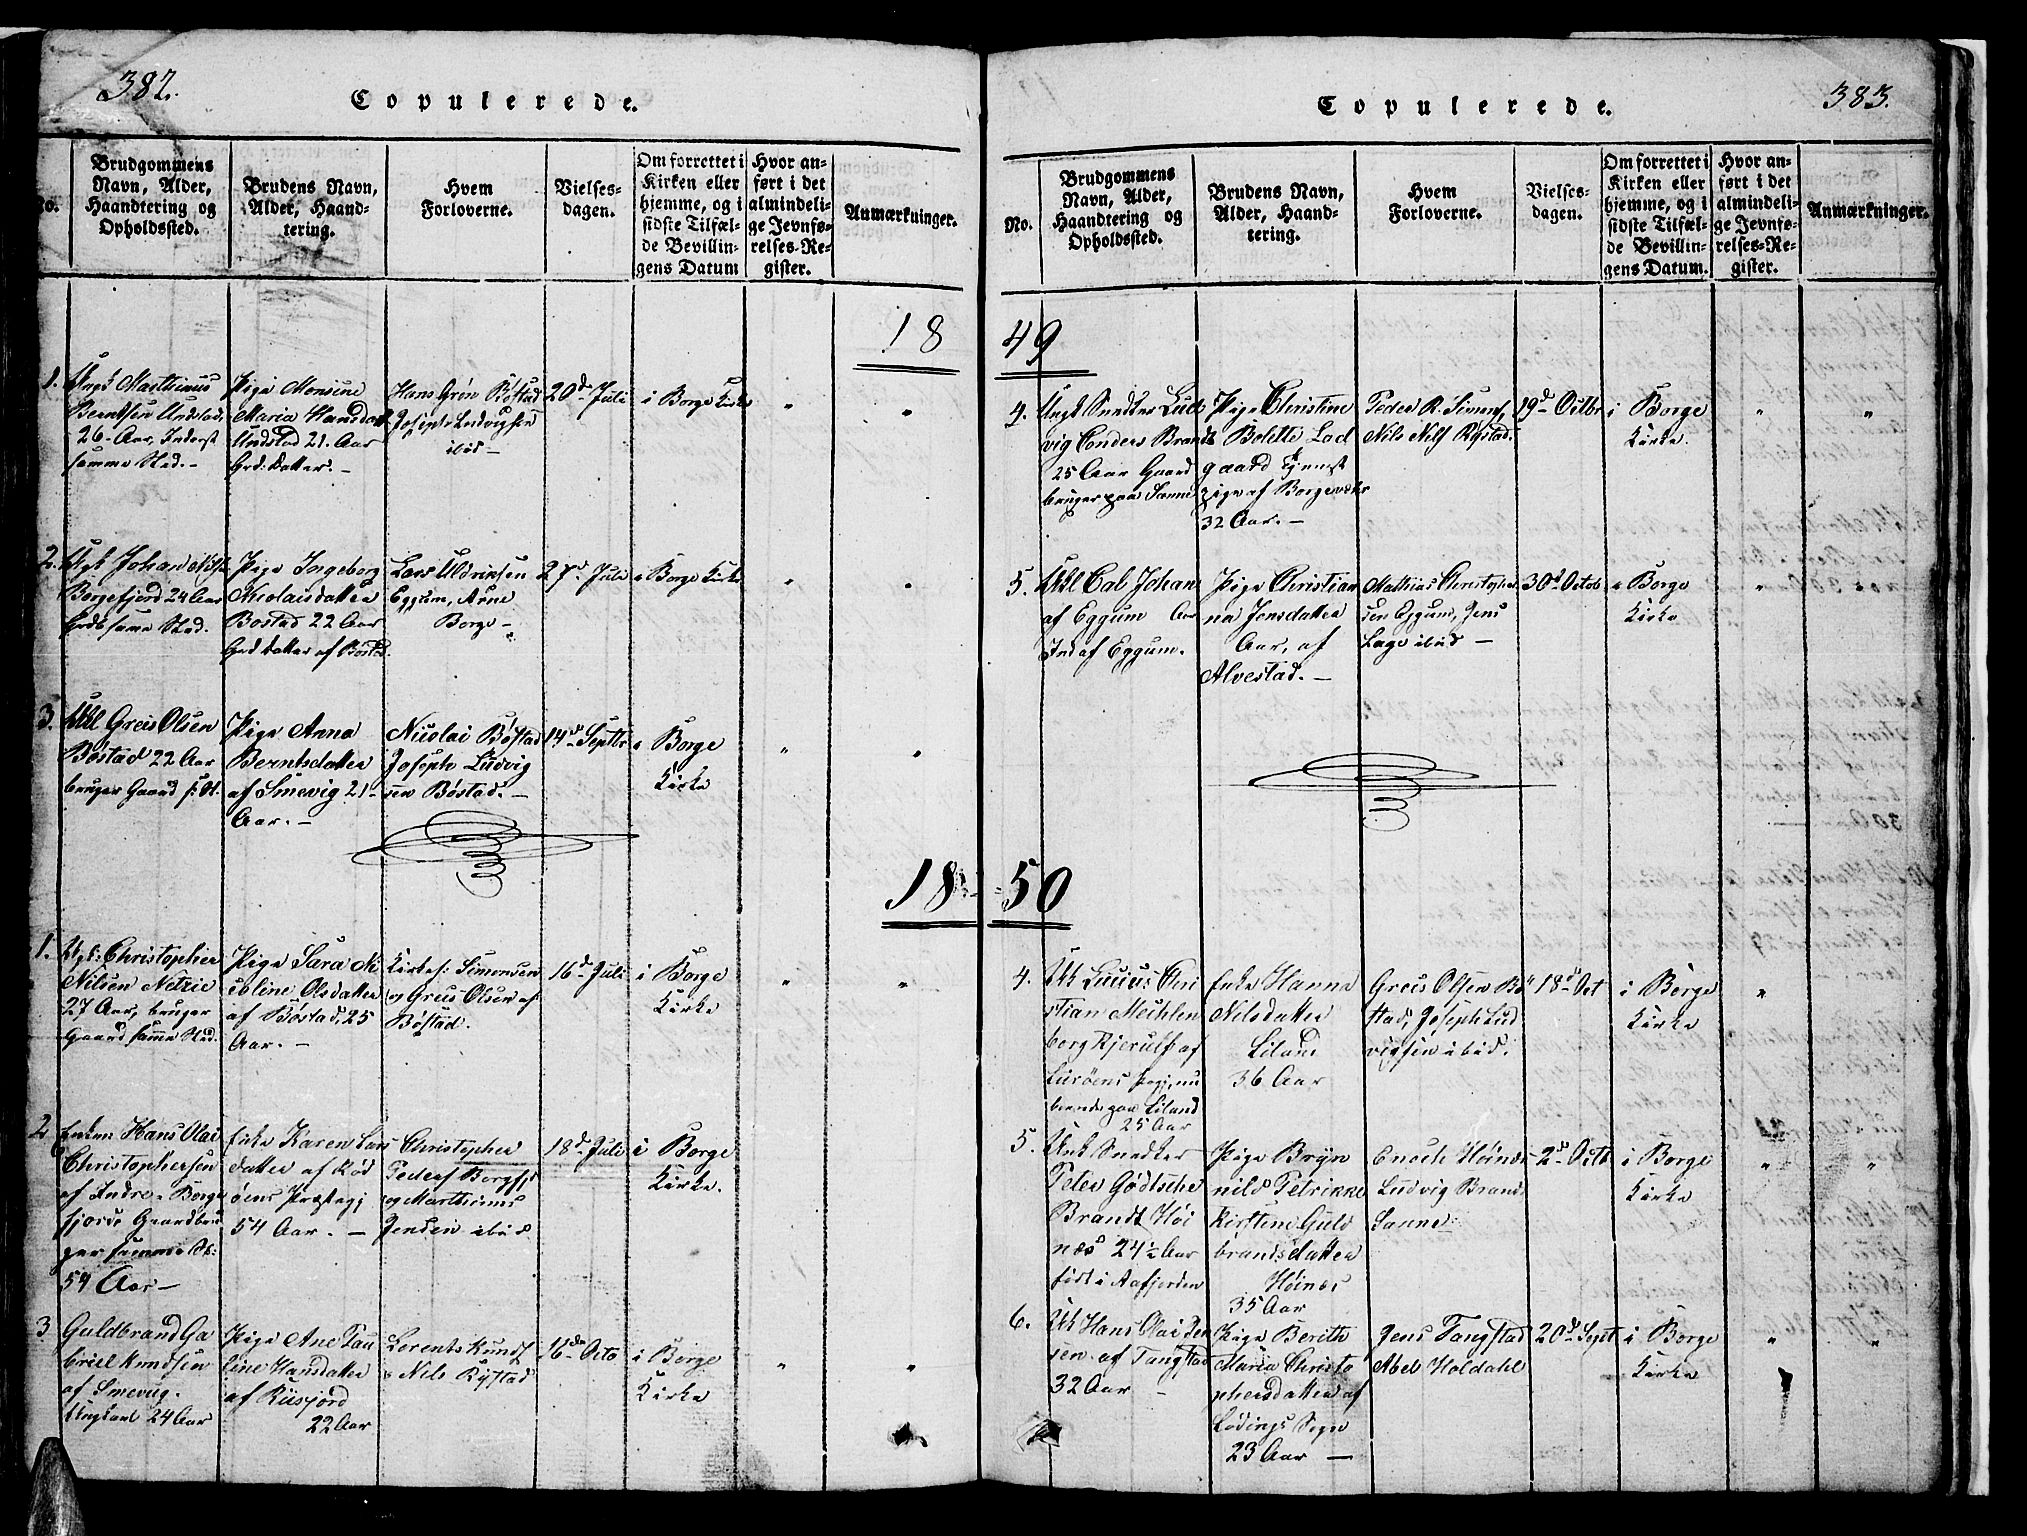 382.
Copulerede.
No.
Brudgommens
Navn, Alder,
Haandtering og
Opholdssted.
Brudens Navn,
Alder, Haand-
tering.
Hvem
Forloverne.
Vielses-
dagen.
Om forrettet i
Kirken eller
hjemme, og i
sidste Tilfæl-
de Bevillin-
gens Datum
Hvor an-
ført i det
almindeli-
ge Jevnfø-
relses-Re-
gister.
Anmærkninger.
18
1.
Ungk Marthinus
Berntsen Undstad
26 Aar, Inderst
samme Sted.-
Pige Monsine
Maria Hansdatt
Undstad 21. Aar
Grd: datter. -
Hans Grön Böstad
Joseph Ludvigsen
ibid -
20d Juli
i Borge Kirke
"
"
2.
Ungk Johan Nilss
Borgefjord 24 Aar
samme Sted.
Pige Ingeborg
Nicolaisdatter
Bostad 22 Aar
Grd datter af Böstad.
Lars Uldriksen
Eggum, Arne
Borge -
27d Juli
i Borge Kirke
"
"
3.
Greis Olsen
Böstad 22 Aar
bruger Gaard s: St.
Pige Anna
Berntsdatter
af Smevig 21-
Aar. -
Nicolai Böstad
Joseph Ludvig
sen Böstad. -
14d Septbr
i Borge
Kirke
"
"
18
1.
Ungk: Christopher
Nilsen Netvie
27 Aar, bruger
Gaard samme Sted.
Pige Sara Ni
coline Olsdatter
af Böstad, 25
Aar. -
Simonsen
og Greis Olsen af
Böstad.
16d Juli
i Borge
Kirke
"
"
2
Enkem Hans Olai
Christophersen
af Indre-Borge
fjord Gaardbru
ger samme St:
54 Aar -
Enke Karen Lars
datter af Röd
öens Præstegj
54 Aar. -
Christopher
Peders Borgfj
og Marthinus
Jensen ibid
18d Juli
i Borge
Kirke.
3
Guldbrand Ga
briel Knudsen
af Smevug.
Ungkarl 24 Aar
Pige Ane Pau
line Hansdatter
af Kusfjord
22 Aar
Lorents Knuds
Nils Rystad
16de Octo
i Borge
Kirke
"
"
383.
Copulerede.
No.
Brudgommens
Navn, Alder,
Haandtering og
Opholdssted.
Brudens Navn,
Alder, Haand-
tering.
Hvem
Forloverne.
Vielses-
dagen.
Om forrettet i
Kirken eller
hjemme, og i
sidste Tilfæl-
de Bevillin-
gens Datum.
Hvor an-
ført i det
almindeli-
ge Jevnfø-
relses-Re-
gister.
Anmærkninger.
49
4.
Ungk Snedker Lud
vig Conders Brandt
25 Aar Gaard
bruger paa Sanne
Pige Christine
Bolette Lad
gaard Tjenest
pige af Borgevær
32 Aar. -
Peder R. Simons
Nils Nils Rystad.
19d Octbr
i Borge
Kirke.
"
"
5.
Cab Johan
af Eggum Aar
Ind af Eggum.
Pige Christian
na Jonsdatter
Aar, af
Alvestad. -
Mathias Christopher
sen Eggum, Jens
Lage ibid -
30d Octob
i Borge
Kirke
"
"
50
4.
Lucius Chri
stian Meihlen
borg Kjerulf af
Luröens
boende paa Liland
25 Aar
Enke Hanna
Nilsdatter
Liland
36 Aar
Greis Olsen Bö
stad, Joseph Lud
vigsen ibid.
18d Oct
i Borge
Kirke
"
5.
Snedker
Peter Gödtsche
Brandt Höi
næs 24½ Aar
födt i Aafjorden
Pige Bryn
nild Petrikke
Kirstine Guld
brandsdatter
Höinæs
35 Aar
Enoch Höinæs
Ludvig Brandt
Sanne
2d Octb
i Borge
Kirke
"
"
6.
Hans Olai Jen
sen af Tangstad
32 Aar -
Pige Berith
Maria Christo
phersdatter af
Lödings Sogn
23 Aar -
Jens Tangstad
Abel Holdahl
20d Sept
i Borge
Kirke
"
"